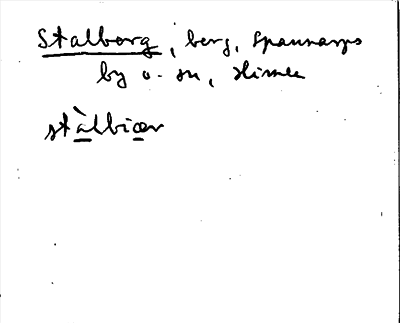 Stalberg, berg, Spannarps
by o. sn, Himle
stàlbiær